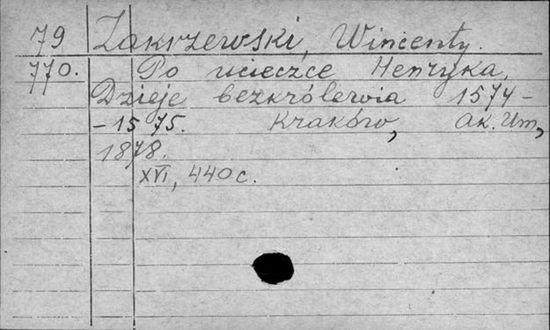 79 Zakrzewski, Wincenty.
770. Po ucieczce Henryka.
Dzieje bezkrólewia 1574-
-1575. Kraków, Ak. Um,
1878.
XVI, 440 c.